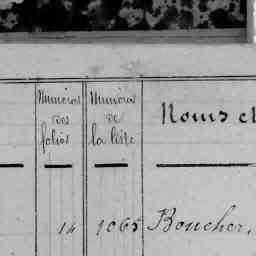 Numéros des folios
Numéros de la liste
Noms et
14 1065 Boucher,